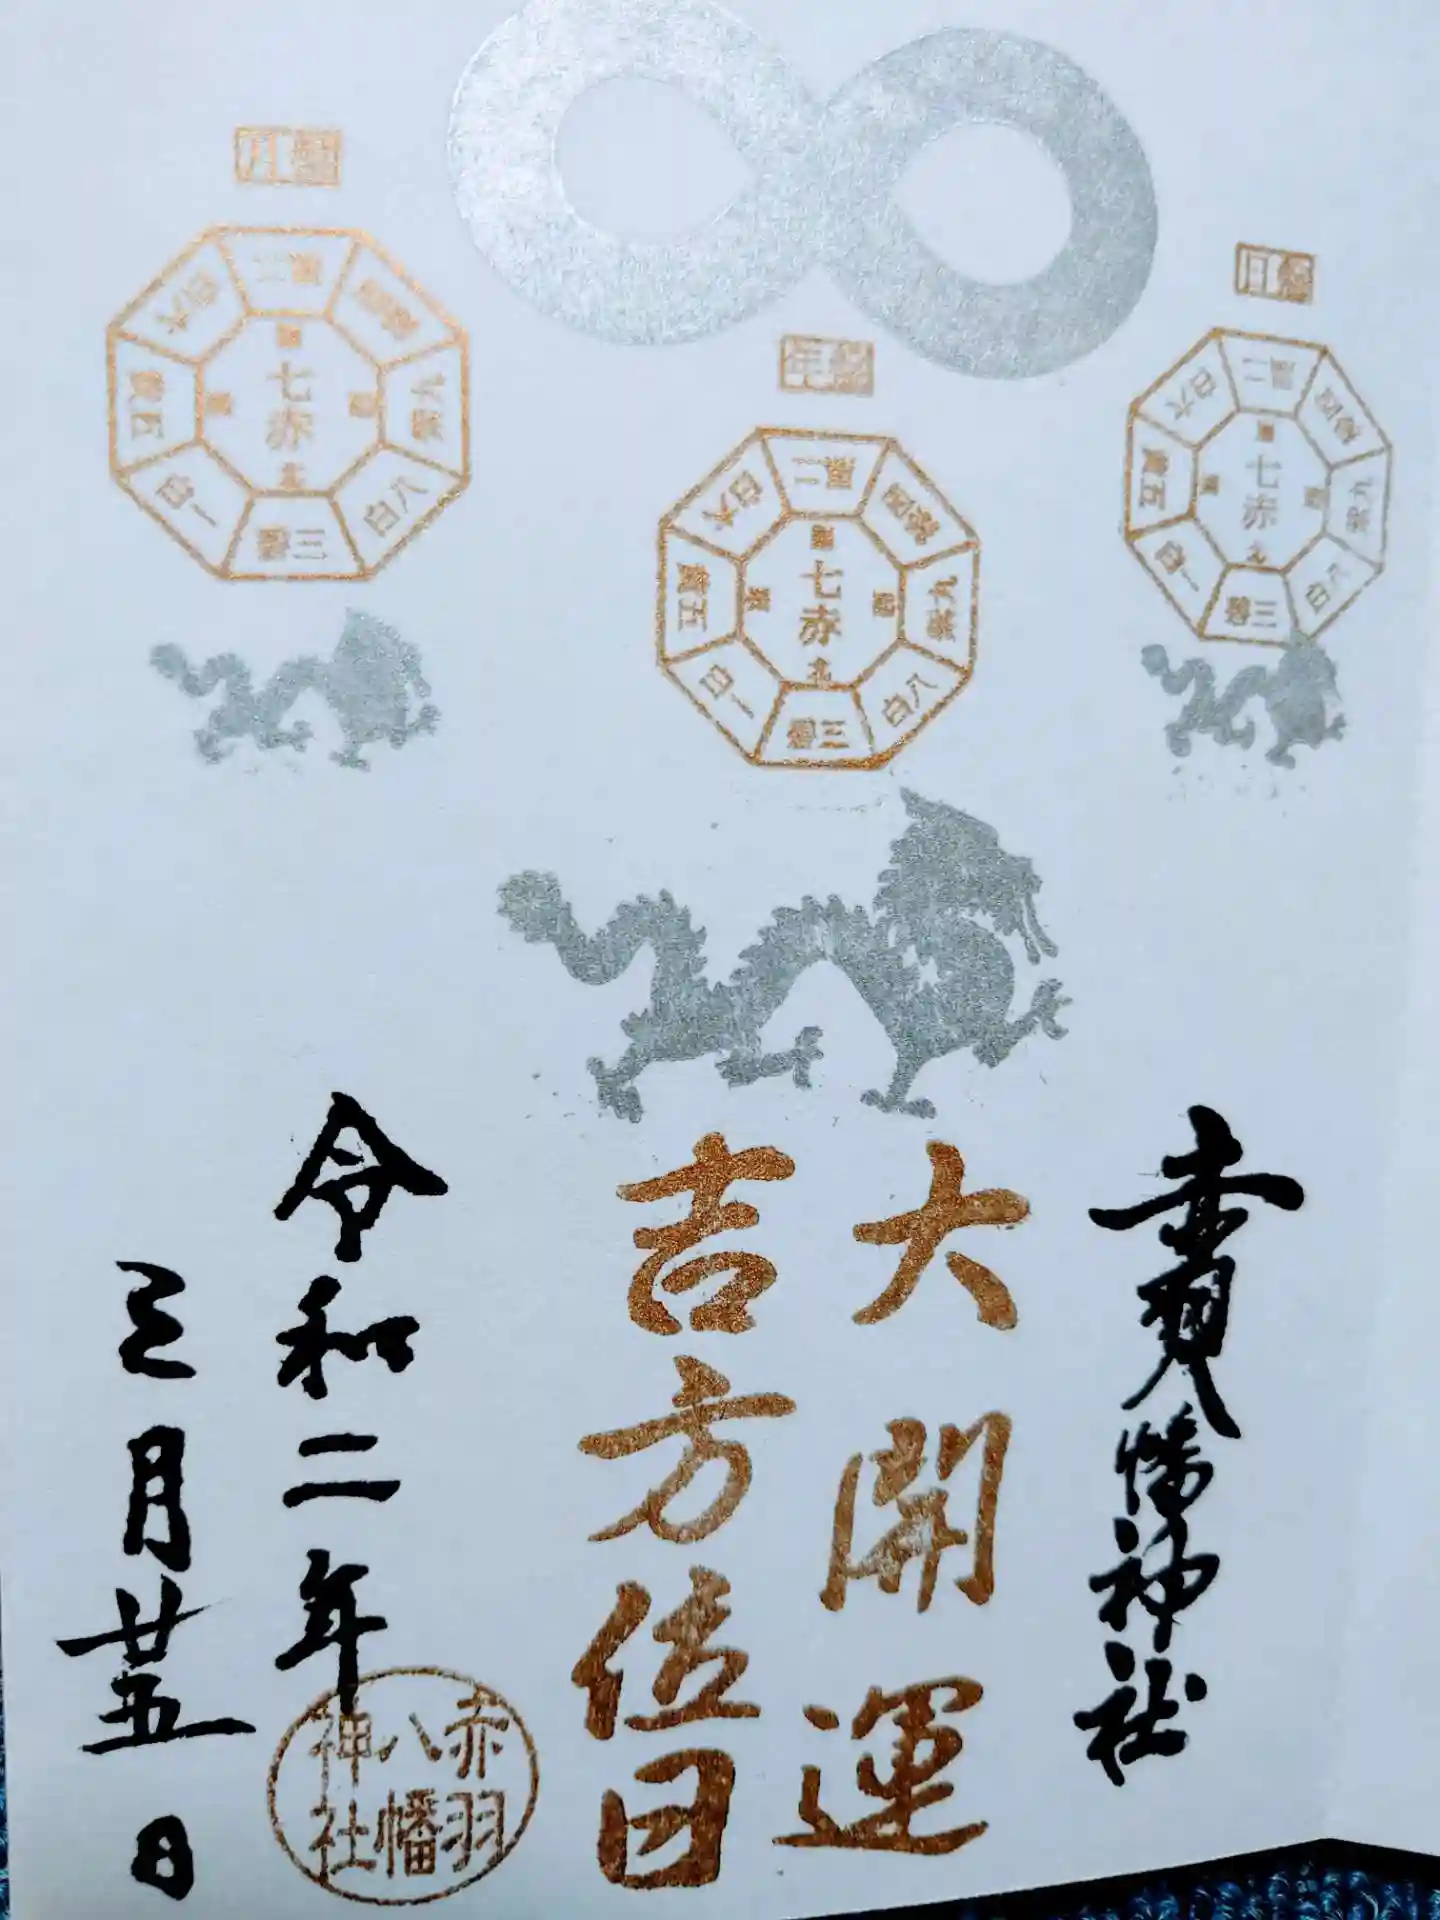 月盤
二黒
四緑
九紫
八白
三碧
一白
五黄
六白
南
東
七赤
西
北
年盤
二黒
四緑
九紫
八白
三碧
一白
五黄
六白
南
東
七赤
西
北
日盤
二黒
四緑
九紫
八白
三碧
一白
五黄
六白
南
東
七赤
西
北
赤羽八幡神社
大開運
吉方位日
令和二年
三月廿五日
赤羽
八幡
神社